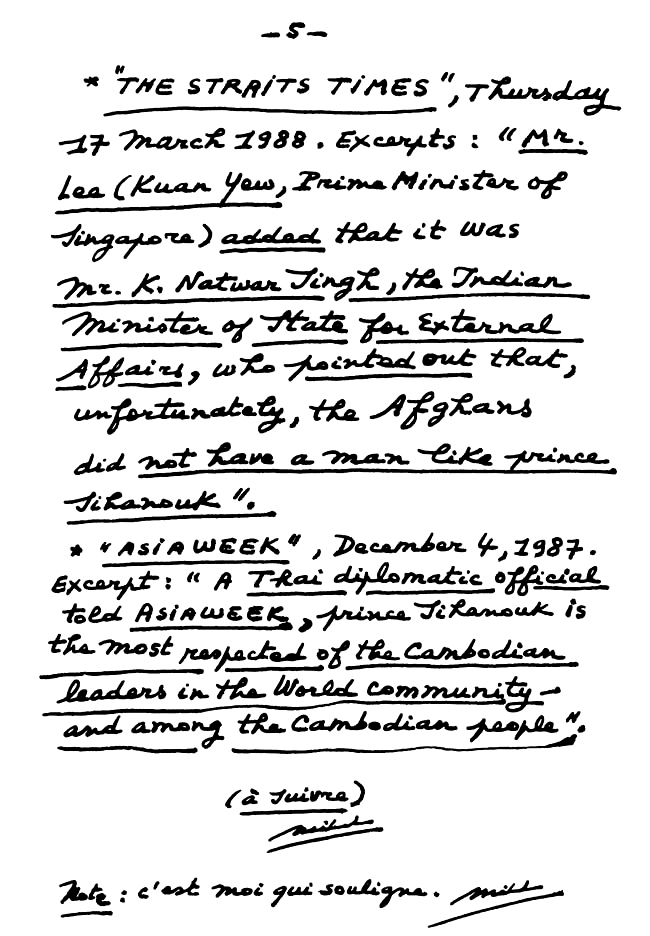 -5-
* "THE STRAITS TIMES", Thursday
17 March 1988. Excerpts : " Mr.
Lee (Kuan Yew, Prime Minister of
Singapore) added that it was
Mr. K. Natwar Singh, the Indian
Minister of State for External
Affairs, who pointed out that,
unfortunately, the Afghans
did not have a man like prince
Sihanouk ".
* "ASIAWEEK", December 4, 1987.
Excerpt : " A Thai diplomatic official
told ASIAWEEK, prince Sihanouk is
the most respected of the Cambodian
leaders in the World community -
and among the Cambodian people".
(à suivre)
Note : c'est moi qui souligne.